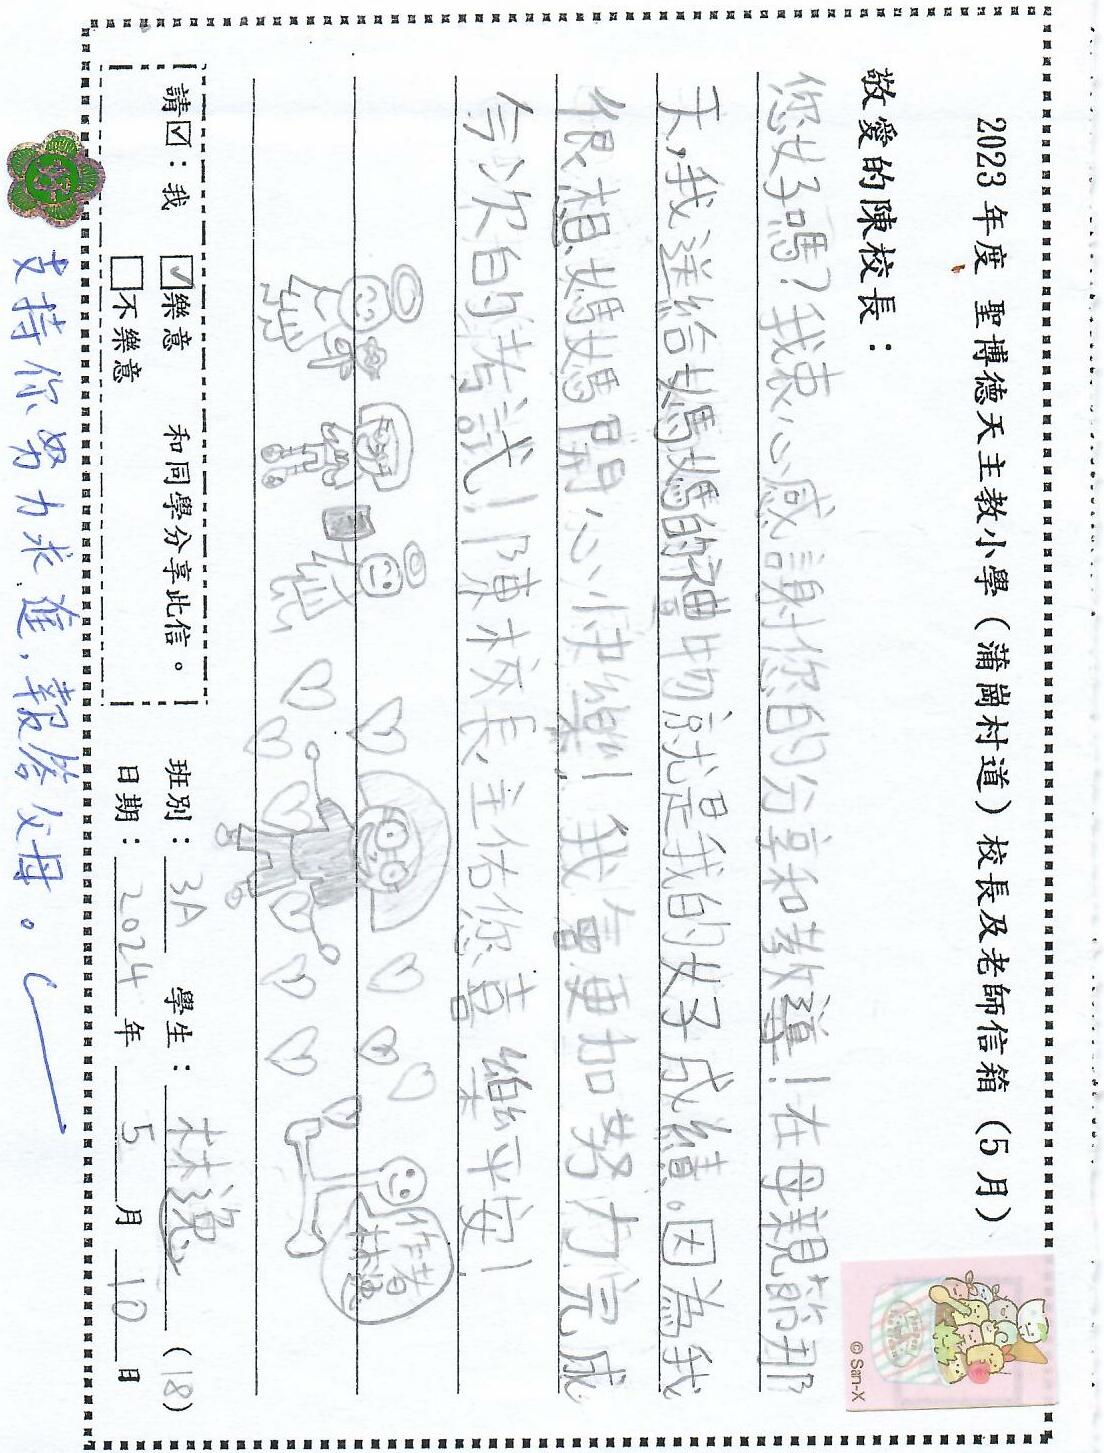 2023年度 聖博德天主教小學（蒲崗村道）校長及老師信箱（5月）
敬愛的陳校長：
您好嗎？我衷心感謝你的分享和教導！在母親節那
天,我送給媽媽的禮物就是我的好成績。因為我
很想媽媽開心快樂！我會更加努力完成
今次的考試！陳校長主佑你喜樂平安！
作者
林逸
請☑：我
☑樂意
□不樂意
和同學分享此信。
班別：3A 學生：林逸 (18)
日期：2024年5月10日
支持你努力求進，報答父母。
© San-X